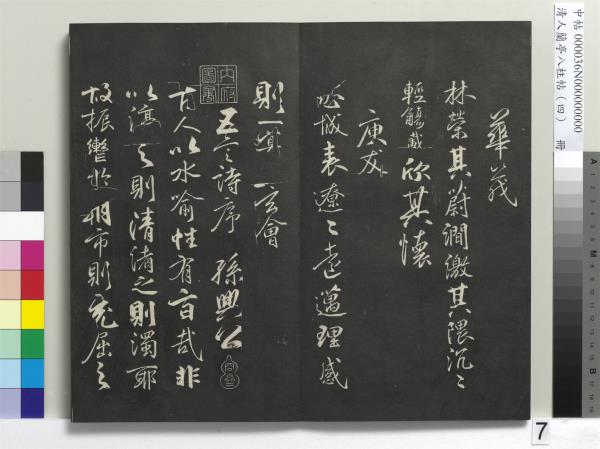 華茂
林榮其蔚澗激其隈汎〻
輕觴載欣其懷
庚友
馳心域表遼〻遠邁理感
則一冥然玄會
五言詩序 孫興公
古人以水喻性有旨哉非
以渟之則清淆之則濁耶
故振轡於朝市則充屈之
內府圖書
中帖 000036N000000000
清人蘭亭八柱帖（四） 冊
7